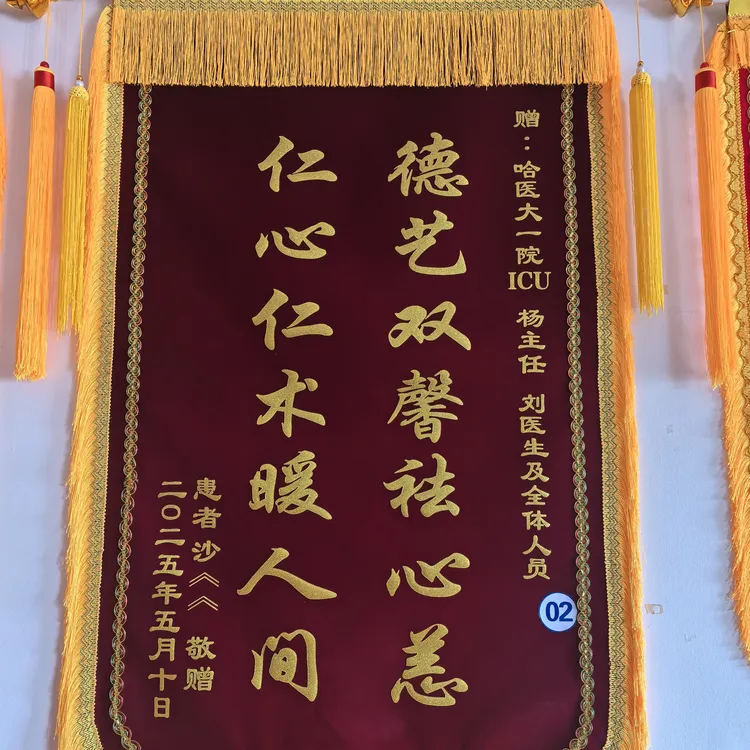 赠：哈医大一院ICU 杨主任 刘医生及全体人员
德艺双馨祛心恙
仁心仁术暖人间
患者沙《《 敬赠
二〇二五年五月十日
02